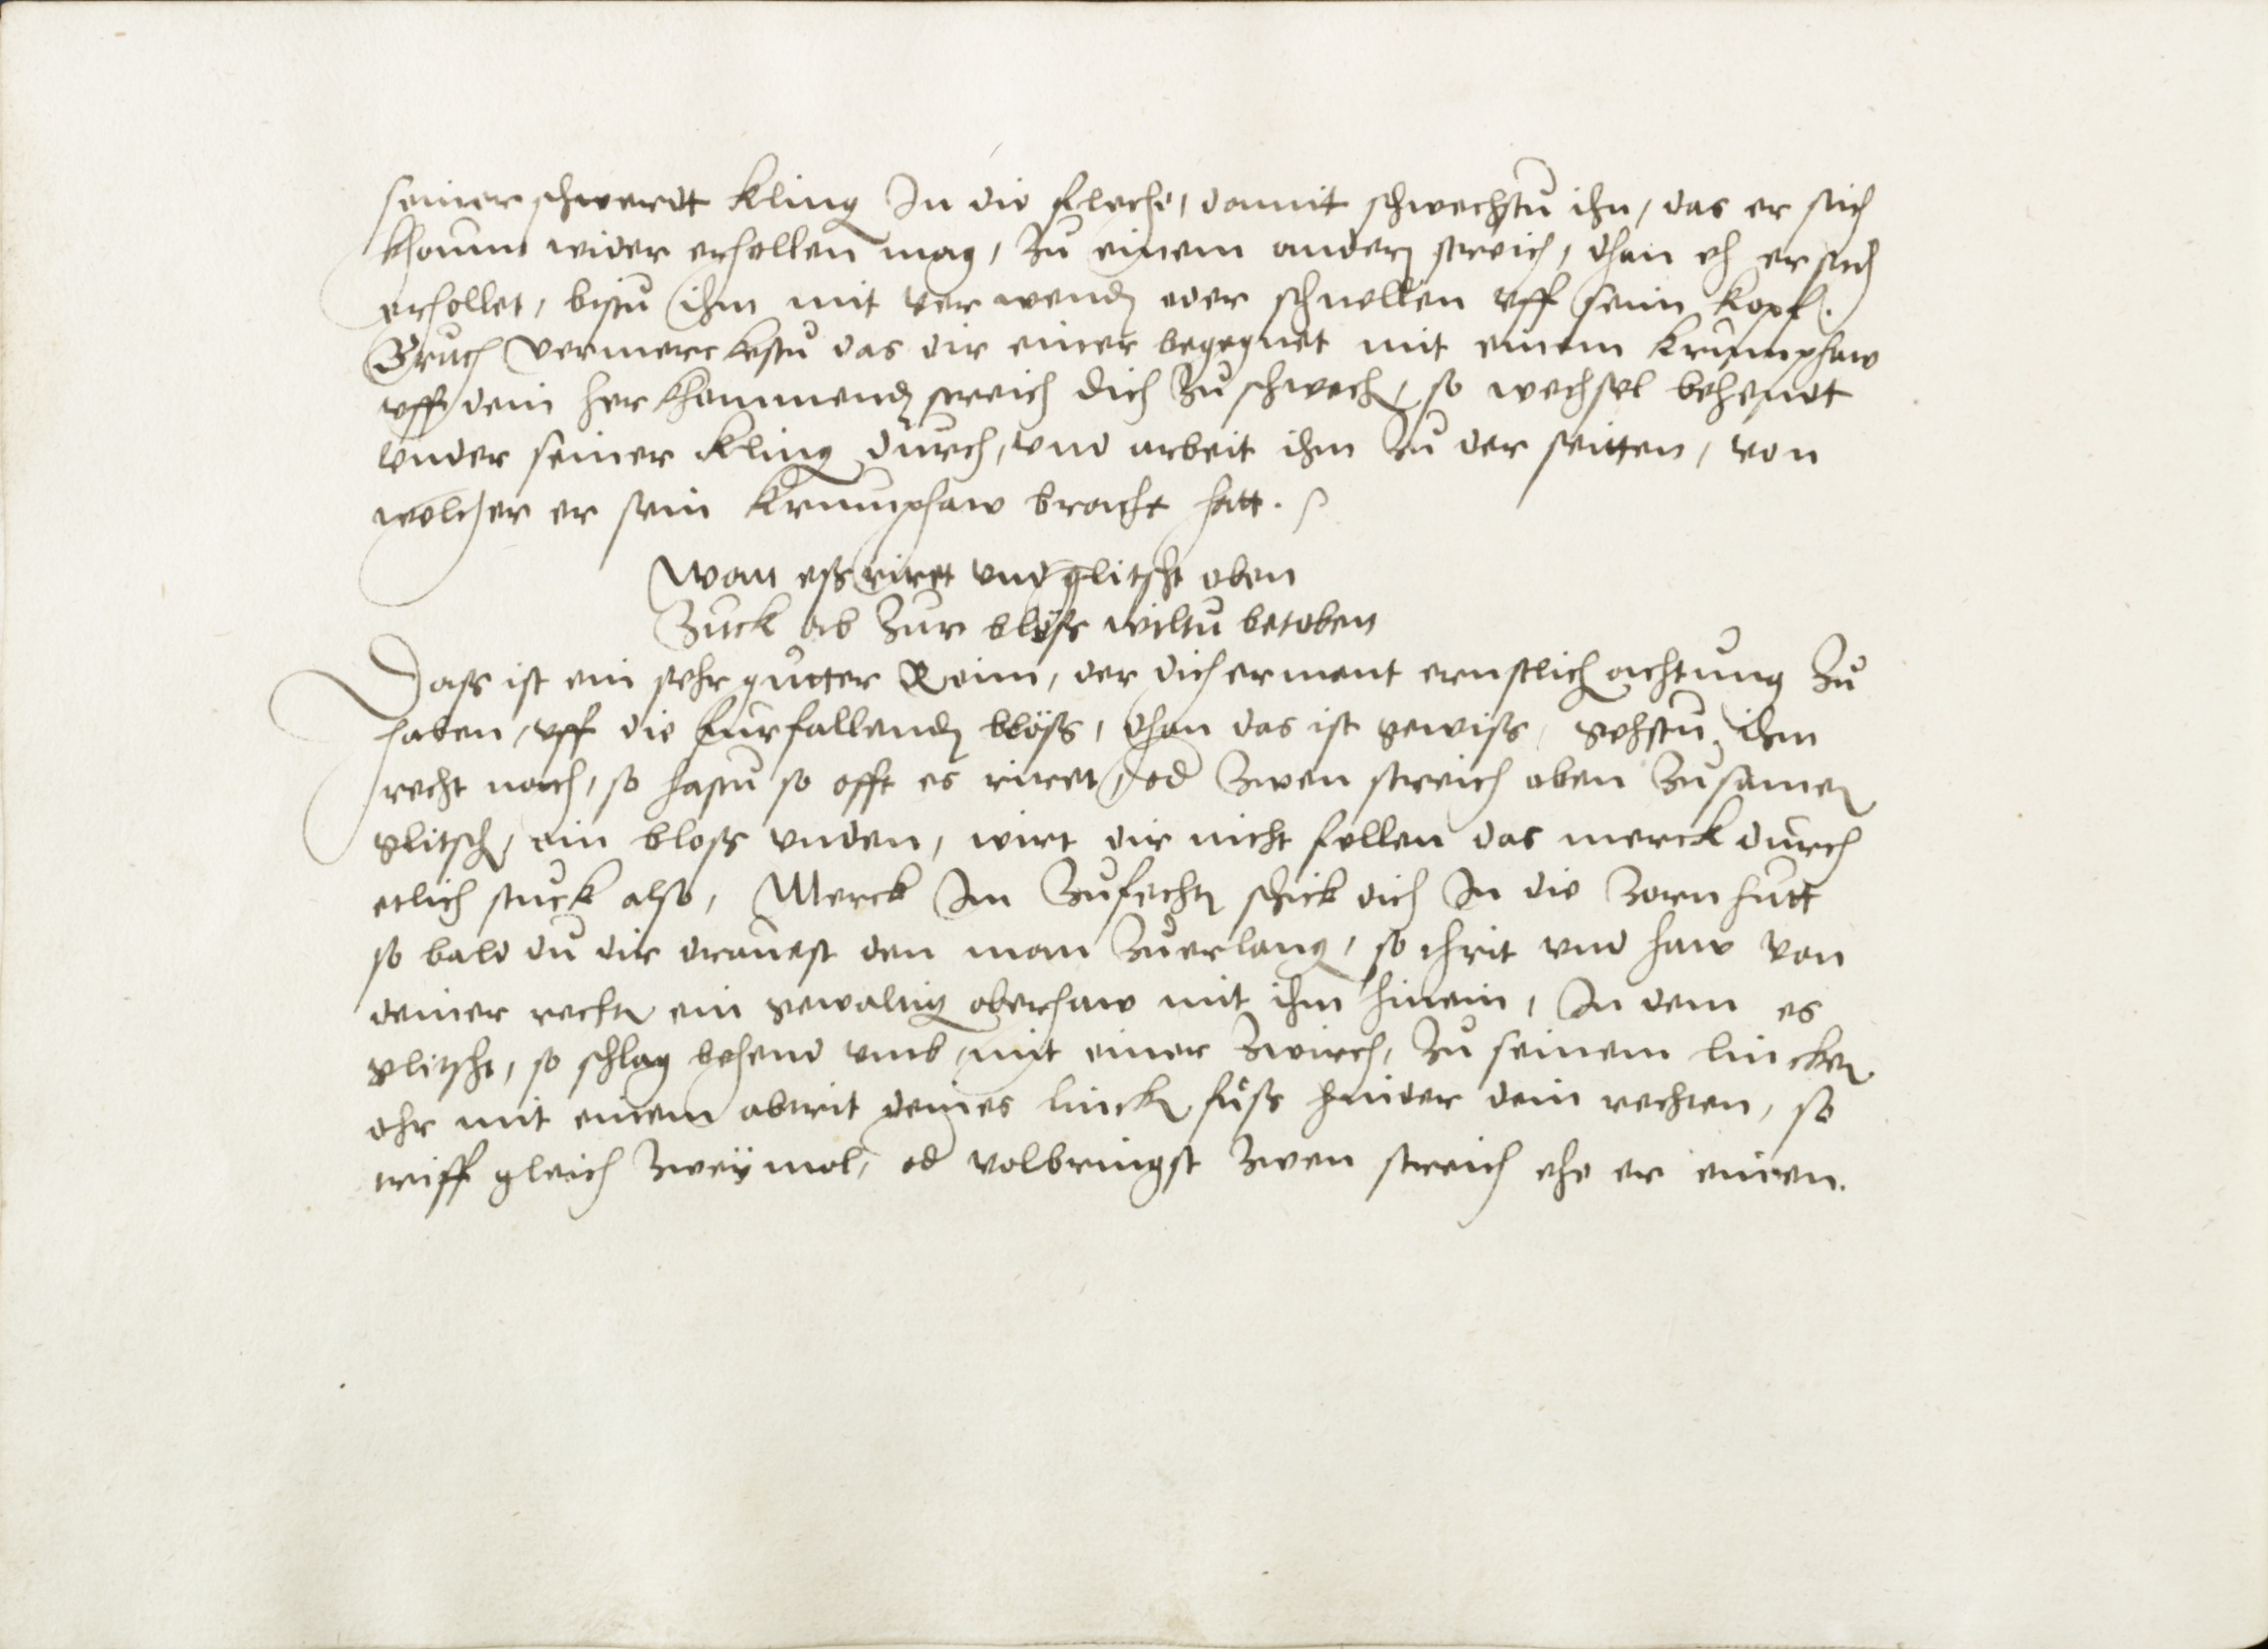 seiner schwerdt kling In die flech, damit schwechstu ihn, das er sich
khaum wider erhollen mag, Zu einem andern streich, than eh er sich
erhollet, bistu ihm mit verwenden oder schnellen vff sein kopf.
Bruch Vermerckestu das dir einer begegnet mit einem krumphaw
vff dein her khommenden streich dich Zu schwechen, so wechsel behendt
vnder seiner kling durch, vnd arbeit ihm Zu der seitten, von
welcher er sein krumphaw bracht hatt.
Wan eß riret vnd glitscht oben
Zuck ab Zur blöß wiltu betoben
Daß ist ein sehr gutter Reim, der dich ermant ernstlich achtung Zu
haben, vff die furfallenden blöß, than das ist gewiß, gehstu ihm
recht nach, so hastu so offt es riret, od zwen streich oben Zusamen
glitschen, ein bloß vnden, wirt dir nicht fellen das merck durch
etlich stuck also, Merck Im Zufechten schick dich In die Zornhutt
so bald du dir drauest den man Zuerlangen, so thrit vnd haw von
deiner rechten ein gewaltig oberhaw mit ihm hinein, In dem es
glitscht, so schlag behend vmb, mit einer Zwirch, Zu seinem lincken
ohr mit einem abtrit deines lincken fuß hinder dein rechten, so
triff gleich Zweÿmol, od volbringst zwen streich ehe er einen.